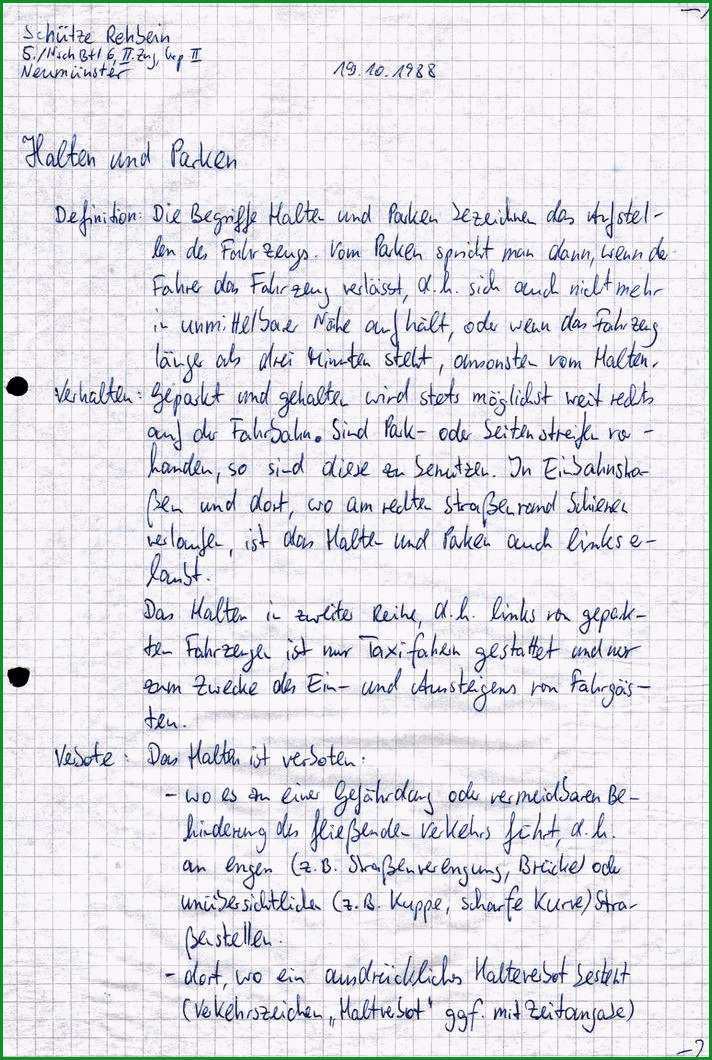 Schütze Rehbein
5./NschBtl 6, II. Zug, Grp II
Neumünster
19.10.1988
Halten und Parken
Definition: Die Begriffe Halten und Parken bezeichnen das Aufstel-
len des Fahrzeugs. Vom Parken spricht man dann, wenn der
Fahrer das Fahrzeug verlässt, d.h. sich auch nicht mehr
in unmittelbarer Nähe aufhält, oder wenn das Fahrzeug
länger als drei Minuten steht, ansonsten vom Halten.
Verhalten: Geparkt und gehalten wird stets möglichst weit rechts
auf der Fahrbahn. Sind Park- oder Seitenstreifen vor-
handen, so sind diese zu benutzen. In Einbahnstra-
ßen und dort, wo am rechten Straßenrand Schienen
verlaufen, ist das Halten und Parken auch links er-
laubt.
Das Halten in zweiter Reihe, d.h. links von gepark-
ten Fahrzeugen ist nur Taxifahrern gestattet und nur
zum Zwecke des Ein- und Aussteigens von Fahrgäs-
ten.
Verbote: Das Halten ist verboten:
- wo es zu einer Gefährdung oder vermeidbaren Be-
hinderung des fließenden Verkehrs führt, d.h.
an engen (z.B. Straßenverengung, Brücke) oder
unübersichtlichen (z.B. Kuppe, scharfe Kurve) Stra-
ßenstellen.
- dort, wo ein ausdrückliches Halteverbot besteht
(Verkehrszeichen „Haltverbot" ggf. mit Zeitangabe)